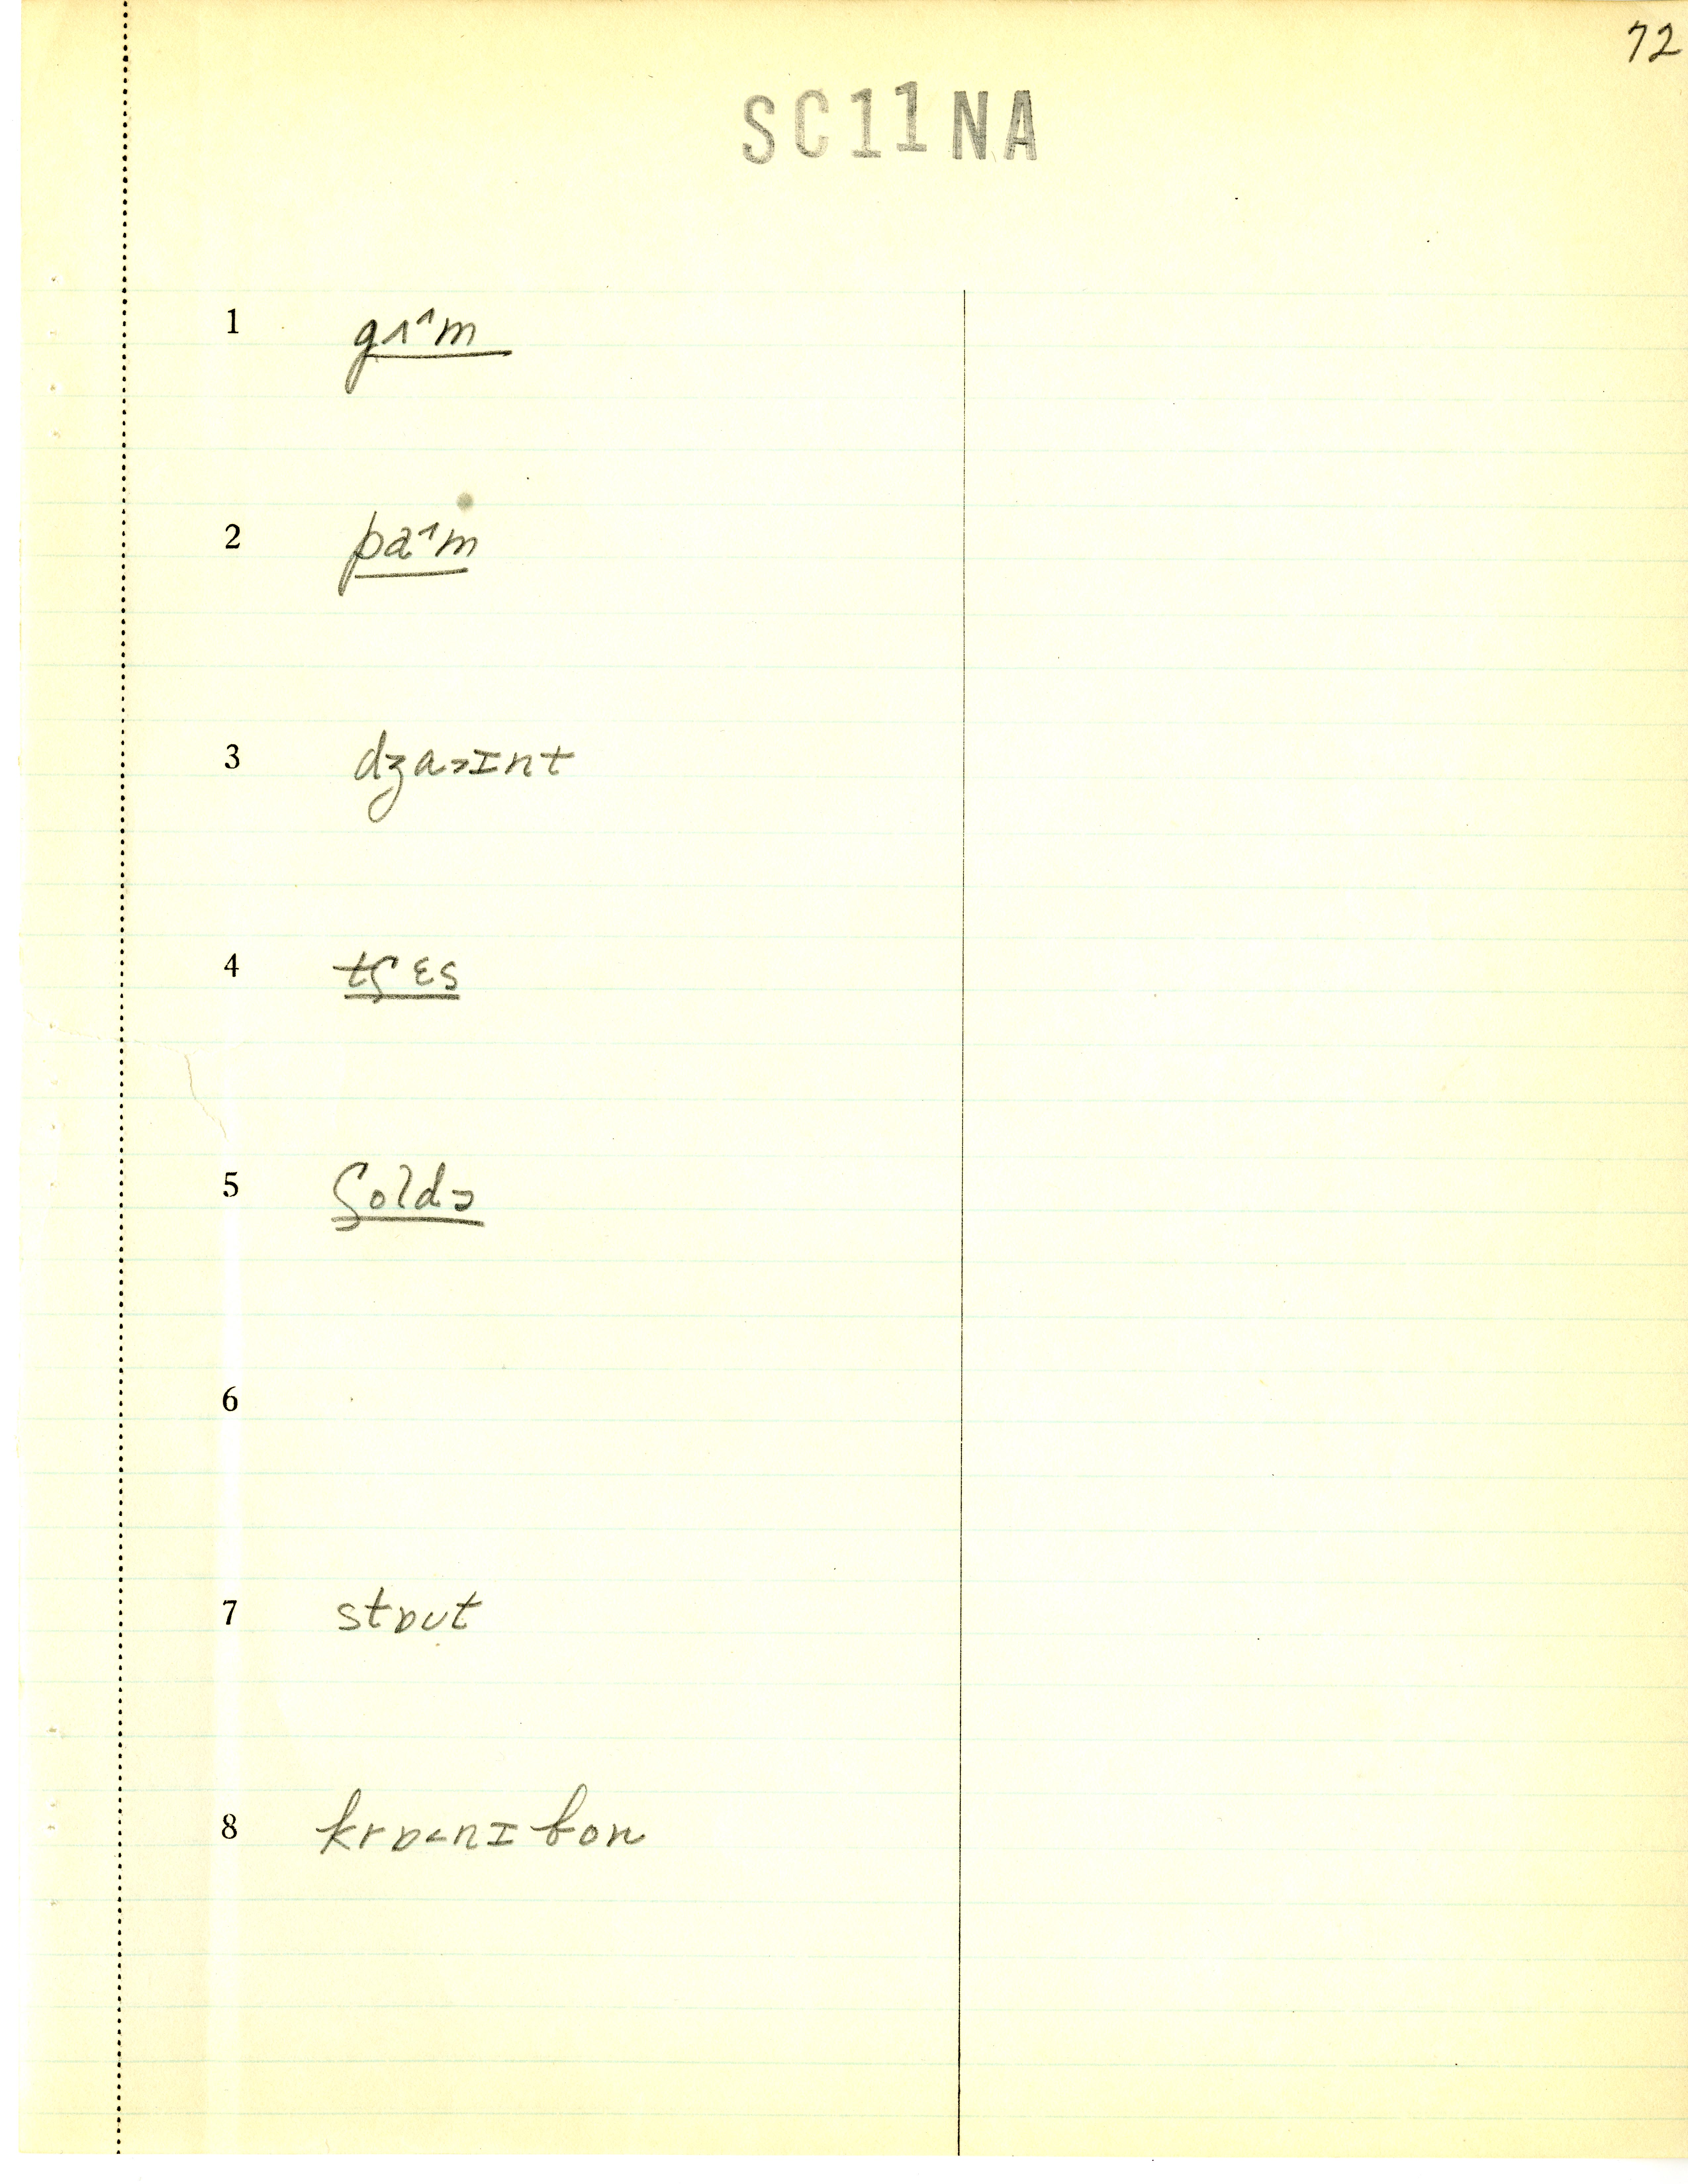 72
SC11NA
1 gʌ˄m
2 pa˄m
3 dʒa˃ɪnt
4 tʃɛs
5 ʃoldə
6
7 stɒut
8 krɒ˂nɪ bon